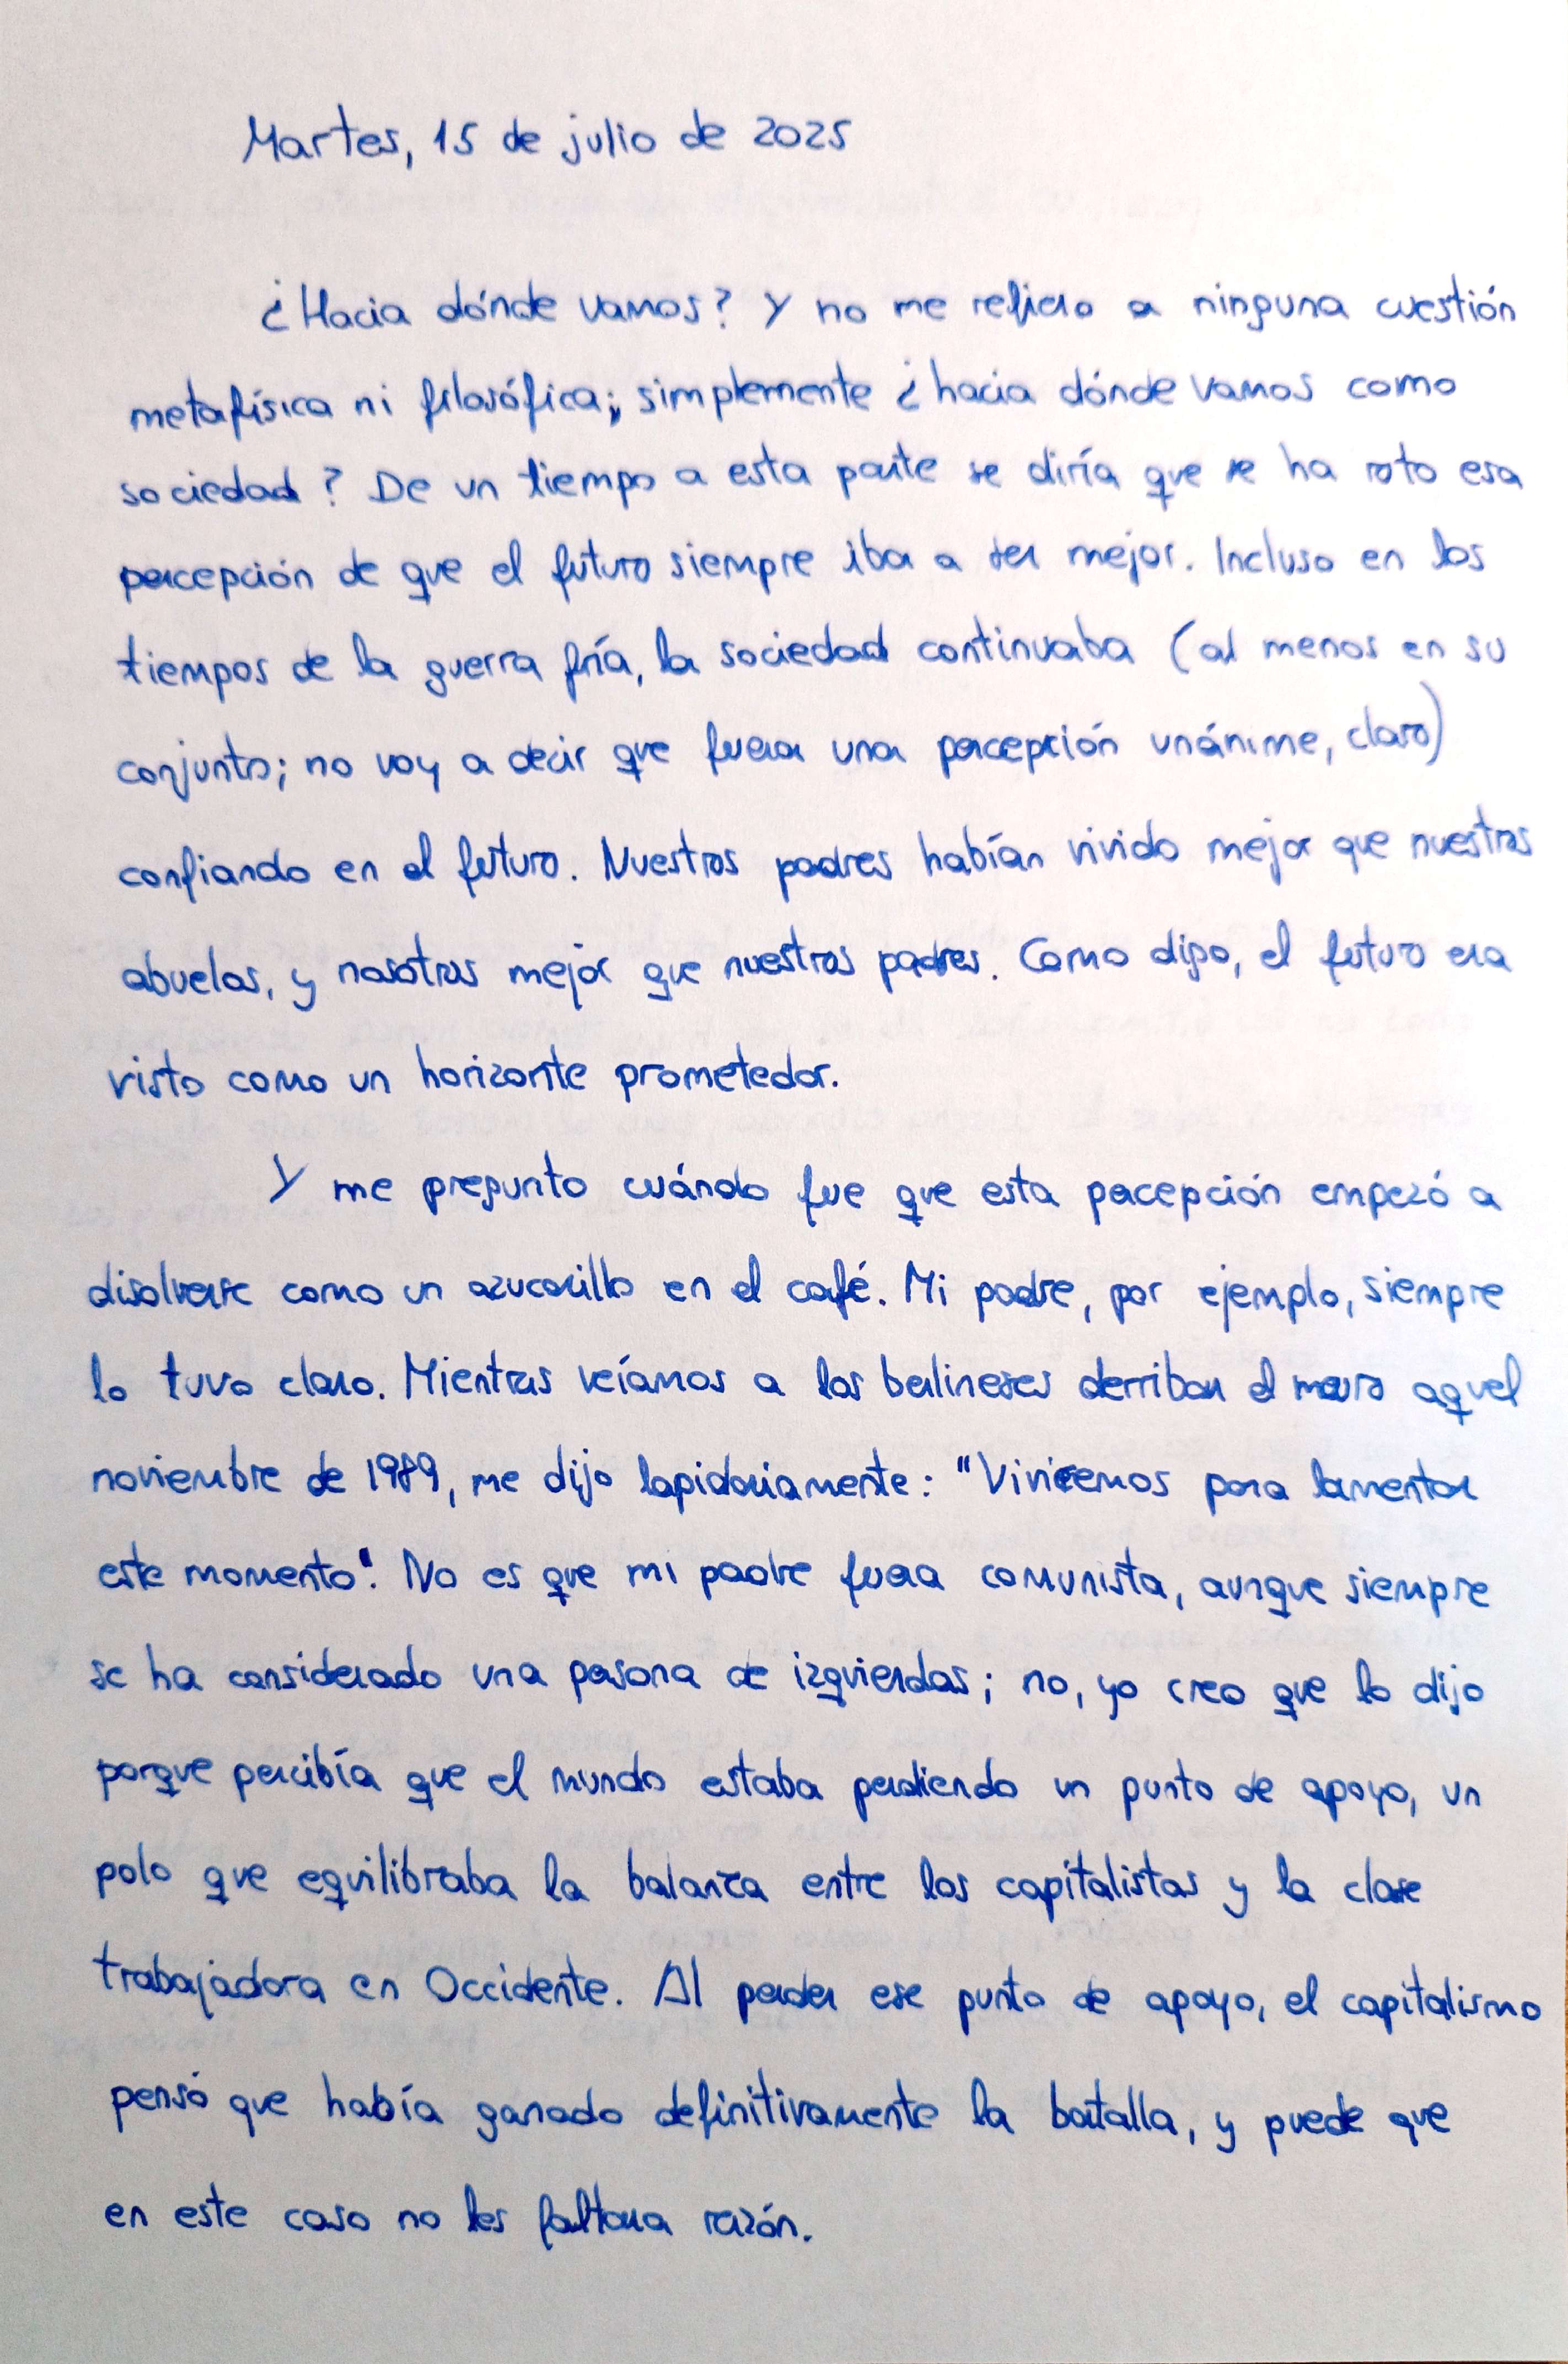 Martes, 15 de julio de 2025
¿Hacia dónde vamos? Y no me refiero a ninguna cuestión
metafísica ni filosófica; simplemente ¿hacia dónde vamos como
sociedad? De un tiempo a esta parte se diría que se ha roto esa
percepción de que el futuro siempre iba a ser mejor. Incluso en los
tiempos de la guerra fría, la sociedad continuaba (al menos en su
conjunto; no voy a decir que fuera una percepción unánime, claro)
confiando en el futuro. Nuestros padres habían vivido mejor que nuestros
abuelos, y nosotros mejor que nuestros padres. Como digo, el futuro era
visto como un horizonte prometedor.
Y me pregunto cuándo fue que esta percepción empezó a
disolverse como un azucarillo en el café. Mi padre, por ejemplo, siempre
lo tuvo claro. Mientras veíamos a los berlineses derribar el muro aquel
noviembre de 1989, me dijo lapidariamente: "Viviremos para lamentar
este momento". No es que mi padre fuera comunista, aunque siempre
se ha considerado una persona de izquierdas; no, yo creo que lo dijo
porque percibía que el mundo estaba perdiendo un punto de apoyo, un
polo que equilibraba la balanza entre los capitalistas y la clase
trabajadora en Occidente. Al perder ese punto de apoyo, el capitalismo
pensó que había ganado definitivamente la batalla, y puede que
en este caso no les faltara razón.